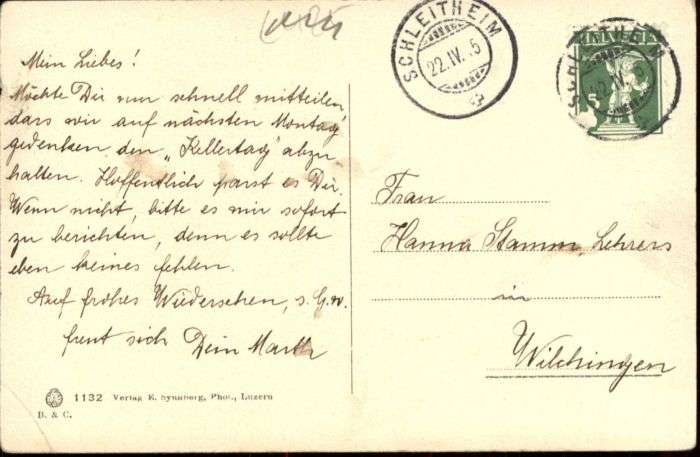 Mein Liebes!
Möchte Dir nur schnell mitteilen,
dass wir auf nächsten Montag
gedenken den „Kellertag" abzu-
halten. Hoffentlich passt es Dir.
Wenn nicht, bitte es mir sofort
zu berichten, denn es sollte
eben keines fehlen.
Auf frohes Wiedersehen, s. G. w.
freut sich Dein
1132 Verlag E. Synnberg, Phot., Luzern
B. & C.
SCHLEITHEIM
22.IV. 5
HELVETIA
5
SCHLEITHEIM
Frau
Hanna Stamm, Lehrers
in
Wilchingen